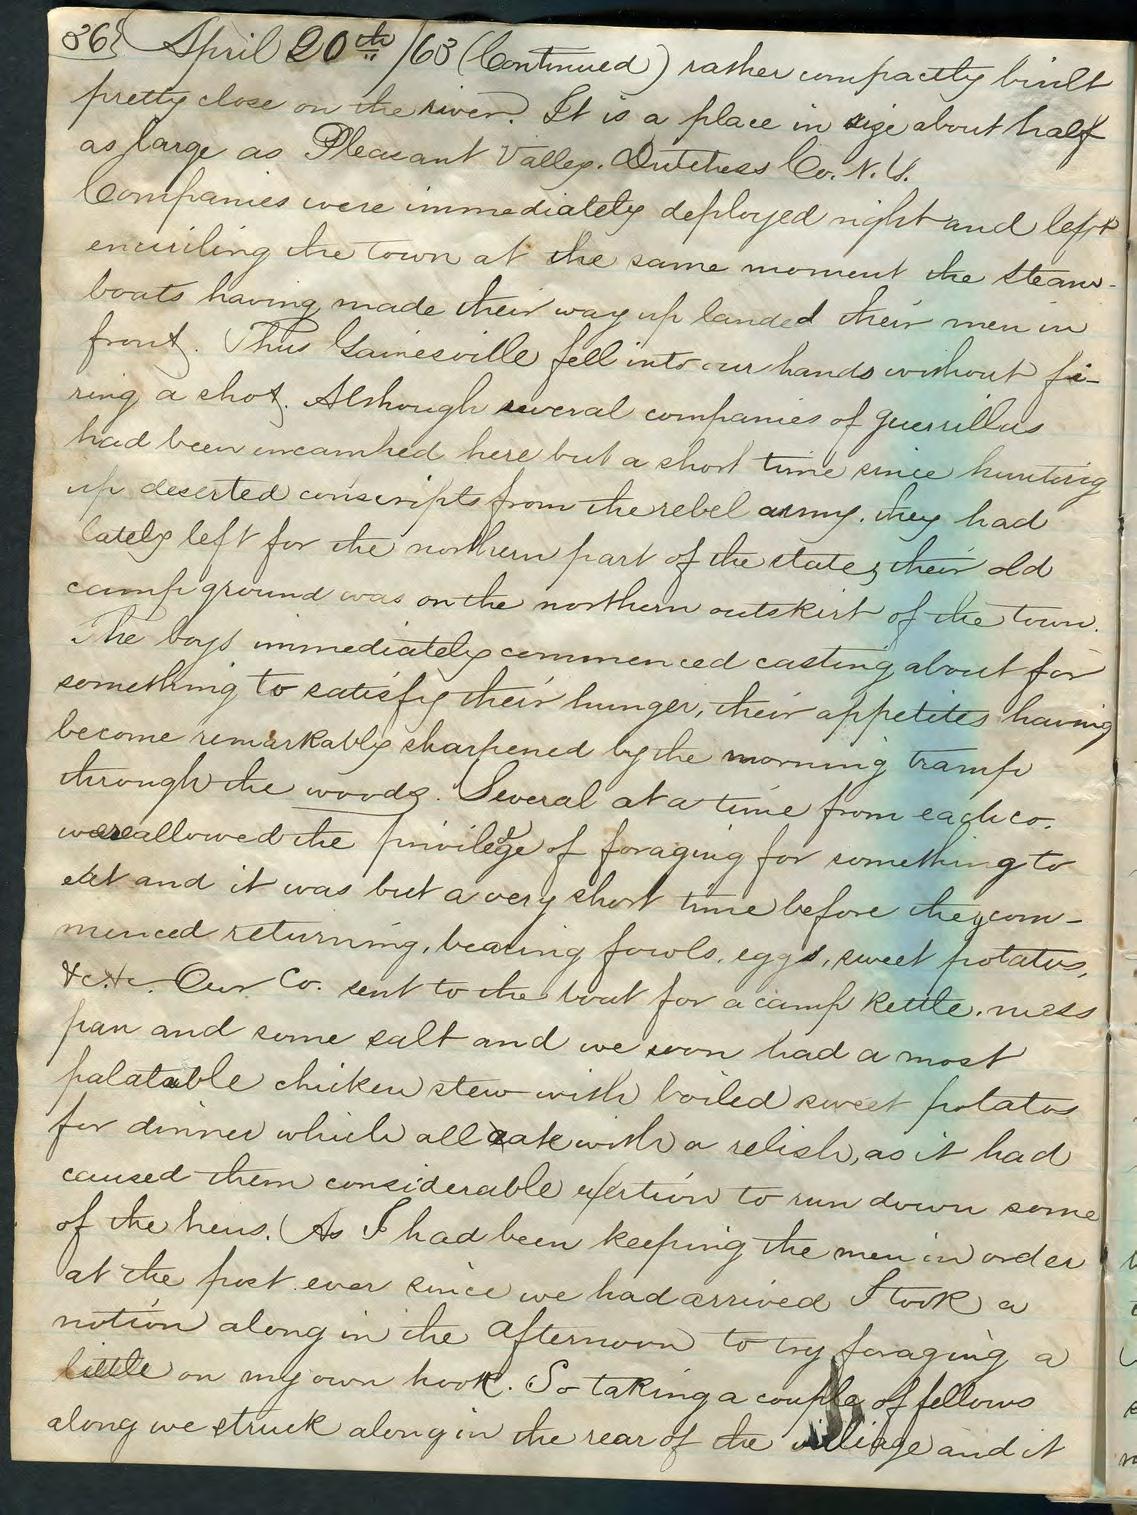 36} April 20th /63 (Continued) rather compactly built
pretty close on the river. It is a place in size about half
as large as Pleasant Valley. Dutchess Co. N.Y.
Companies were immediately deployed right and left
enciriling the town at the same moment the steam-
boats having made their way up landed their men in
front. Thus Gainesville fell into our hands without fi-
ring a shot. Although several companies of guerrillas
had been incamhed here but a short time since hunting
up deserted conscripts from the rebel army. they had
lately left for the northern part of the state, their old
camp ground was on the northern outskirt of the town.
The boys immediately commenced casting about for
something to satisfy their hunger, their appetites having
become remarkably sharpened by the morning tramp
through the woods. Several at a time from each co.
were allowed the privilege of foraging for something to
eat and it was but a very short time before they com-
menced returning, bearing fowls, eggs, sweet potatos,
&c. &c. Our Co. sent to the boat for a camp kettle. mess
pan and some salt and we soon had a most
palatable chicken stew with boiled sweet potatos
for dinner which all eat with a relish, as it had
caused them considerable exertion to run down some
of the hens. (As I had been keeping the men in order
at the post ever since we had arrived I took a
notion along in the afternoon to try foraging a
little on my own hook. So taking a couple of fellows
along we struck along in the rear of the village and it